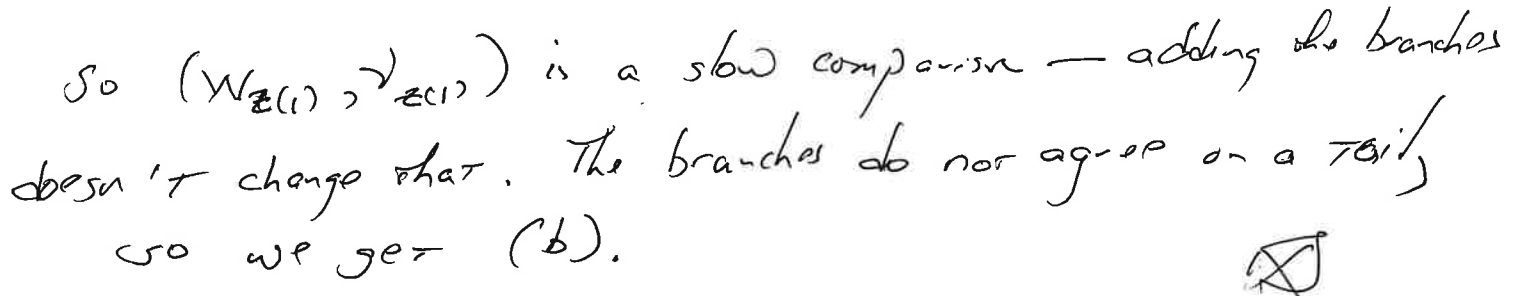 So (W_{z(1)}, ν_{z(1)}) is a slow comparison — adding the branches
doesn't change that. The branches do not agree on a tail,
so we get (b).